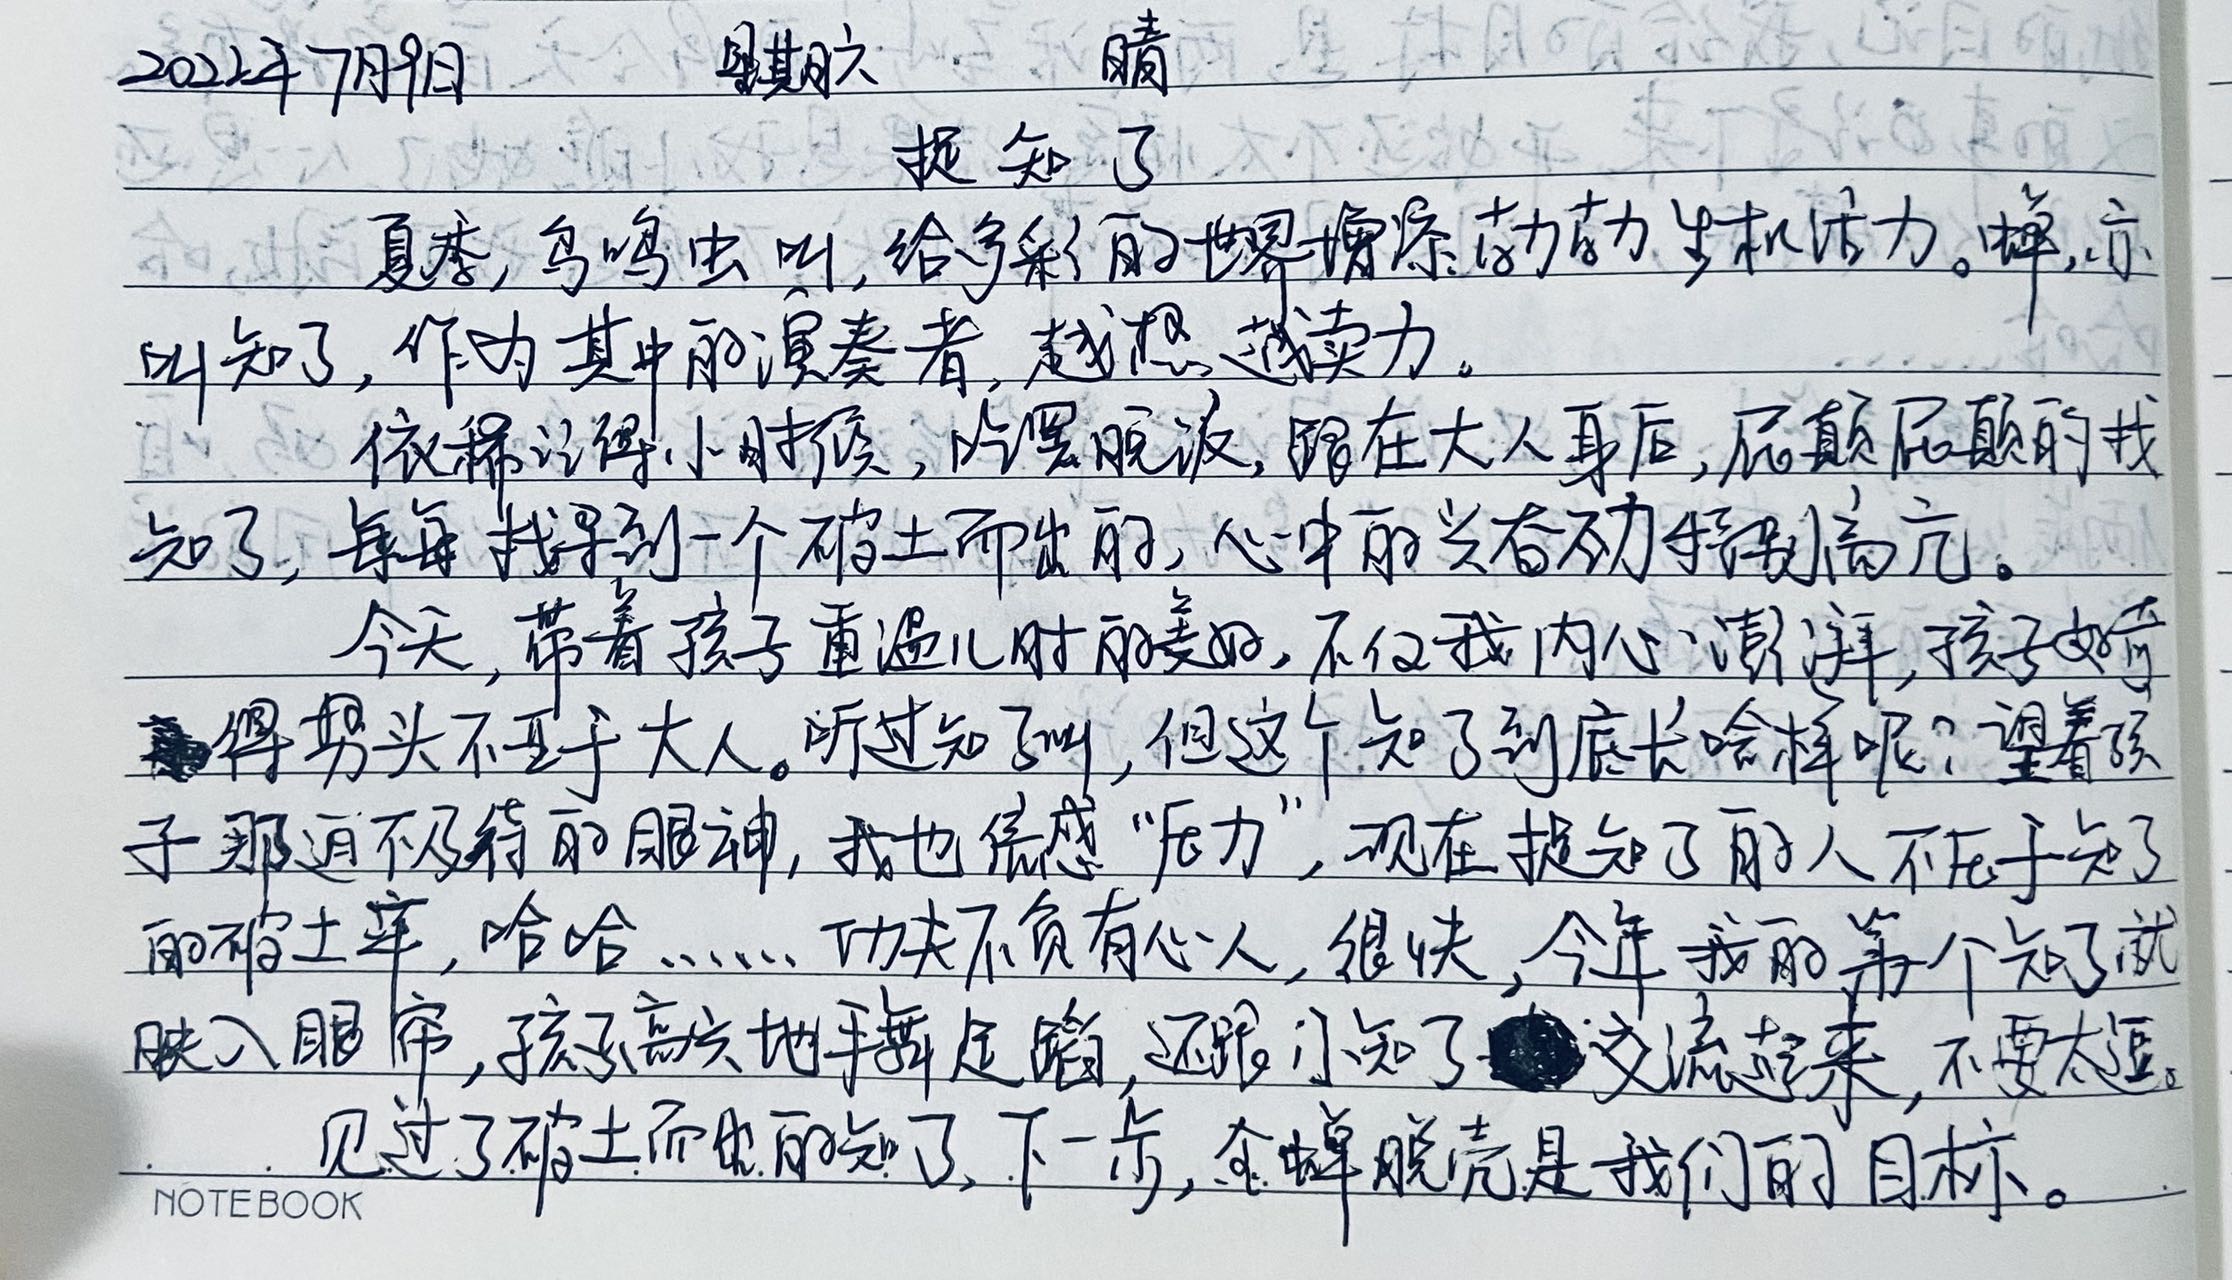 2022年7月9日 星期六 晴
捉知了
夏季,鸟鸣虫叫,给多彩的世界增添勃勃生机活力。蝉,亦
叫知了,作为其中的演奏者,越想越卖力。
依稀记得小时候,吃罢晚饭,跟在大人身后,屁颠屁颠的找
知了,每每找寻到一个破土而出的,心中的兴奋劲特别高亢。
今天,带着孩子重温儿时的美好,不仅我内心澎湃,孩子好奇
得势头不亚于大人。听过知了叫,但这个知了到底长啥样呢?望着孩
子那迫不及待的眼神,我也倍感“压力”,现在捉知了的人不压于知了
的破土率,哈哈……功夫不负有心人,很快,今年我的第一个知了就
映入眼帘,孩子高兴地手舞足蹈,还跟小知了交流起来,不要太逗。
见过了破土而出的知了,下一步,金蝉脱壳是我们的目标。
NOTEBOOK